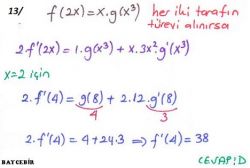 13/ f(2x)=x.g(x³) her iki tarafın
türevi alınırsa
2f'(2x)=1.g(x³)+x.3x²g'(x³)
x=2 için
2.f'(4)=g(8)+2.12.g'(8)
4 3
2.f'(4)=4+24.3 ⇒ f'(4)=38
CEVAP:D
BAYGEBİR